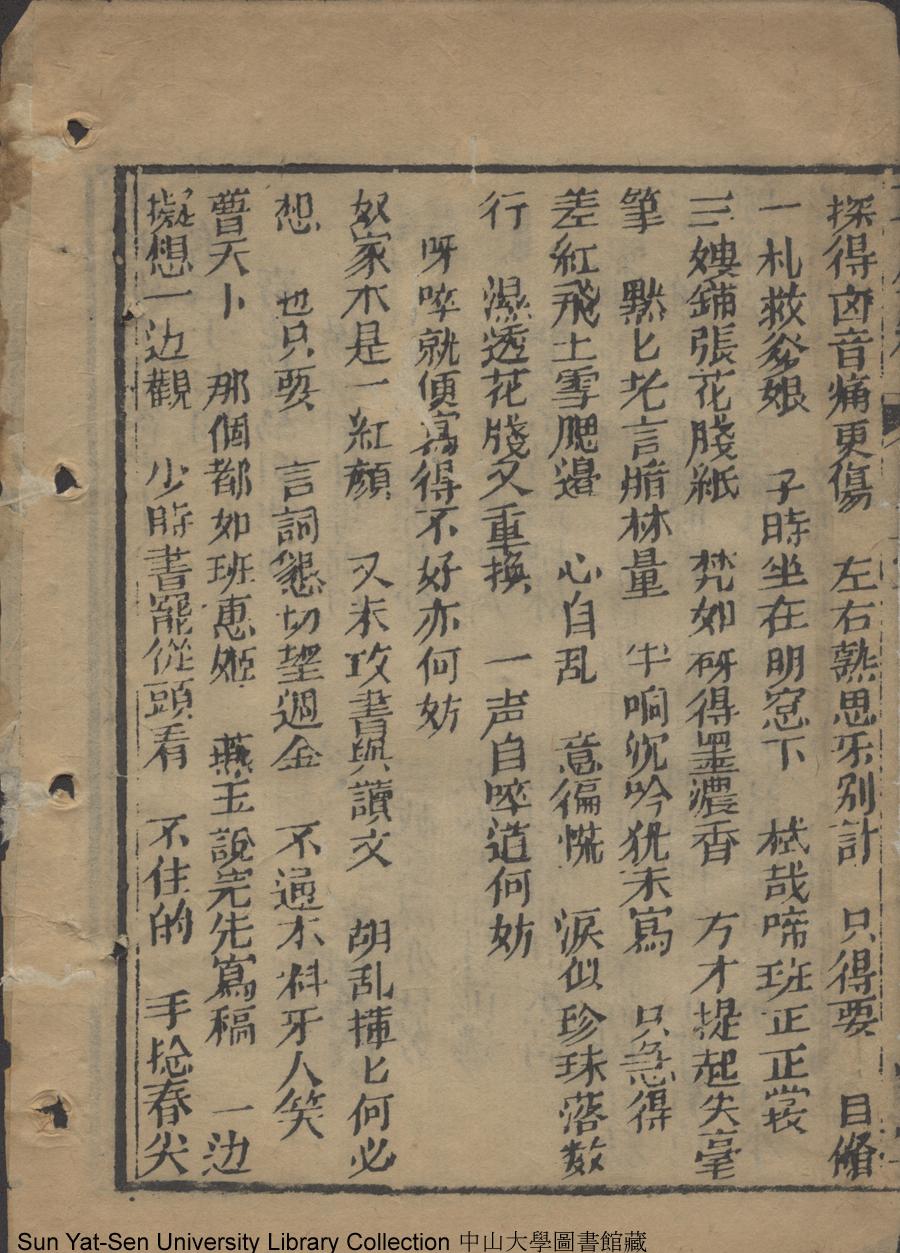 探得卤音痛更傷　左右熟思乐别計　只得要　目脩
一札救爺娘　子時坐在明窓下　栻哉啼班正正裳
三嫂鋪張花牋紙　梵如砑得墨濃香　方才提起失毫
筆　黙匕老言暗林量　半响沉吟犹未寫　只急得
差紅飛土雪腮邊　心自乱　意徧慌　淚似珍珠落数
行　濕透花牋又重換　一声自啐道何妨
呀啐就便寫得不好亦何妨
奴家木是一紅顏　又未攻書與讀文　胡乱揮匕何必
想　也只要　言詞懇切望週金　不通不料牙人笑
普天卜　那個都如班惠姬　燕玉說完先寫稿　一边
擬想一边觀　少時書罷從頭看　不住的　手捻春尖
Sun Yat-Sen University Library Collection 中山大學圖書館藏